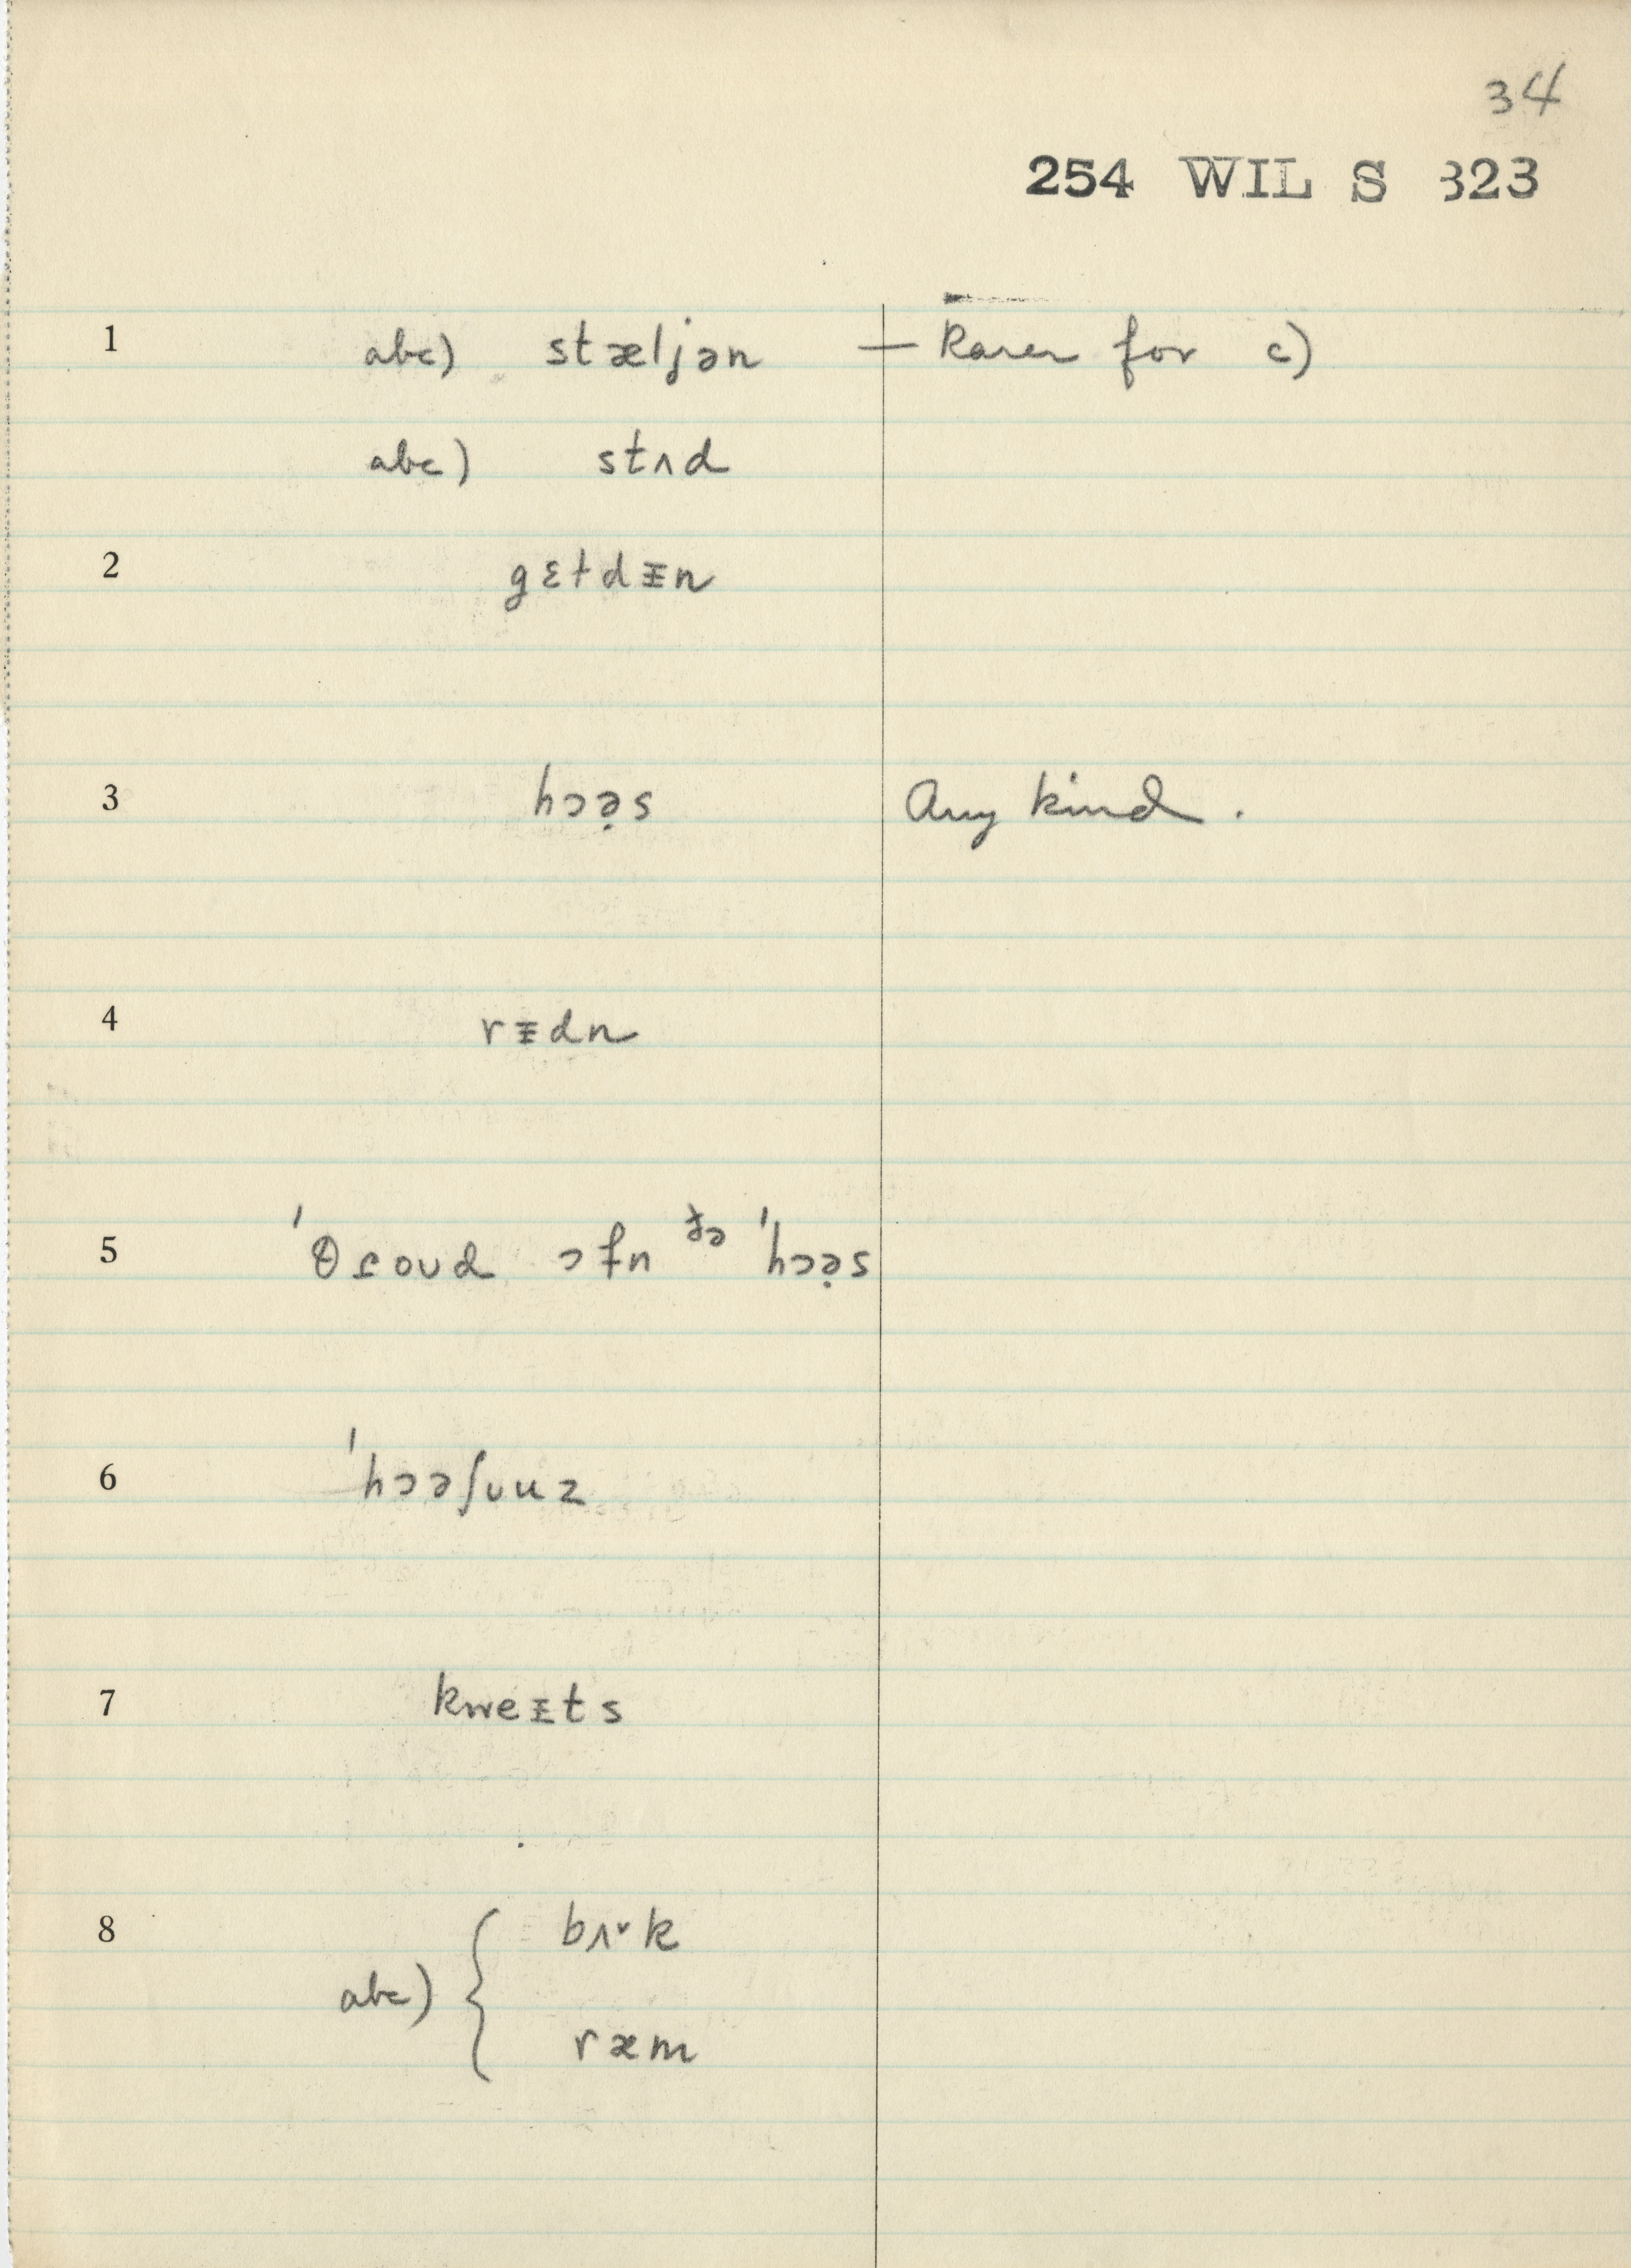 34
254 WIL S 323
1 abc) stæljən — Rarer for c)
abc) stʌd
2 gɛtdᵻn
3 hɔə̣s Any kind.
4 rᵻdn
5 ˈθɾoʊd ɔfn ðə ˈhɔə̣s
6 ˈhɔəʃuuz
7 kweᵻts
8 bʌ˅k
abc) {
ræm